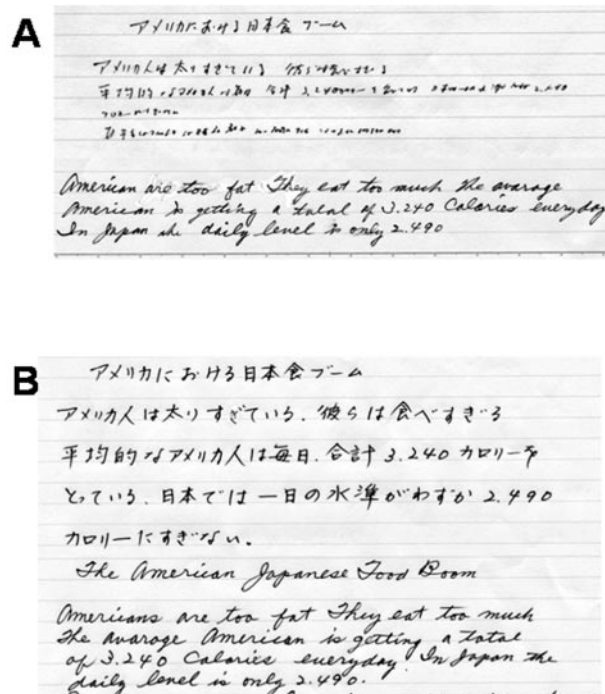 A
アメリカにおける日本食ブーム
アメリカ人は太りすぎている 彼らは食べすぎる
平均的なアメリカ人は毎日 合計 3.240
American are too fat They eat too much the avarage
American is getting a total of 3.240 Calories everyday
In Japan the daily level is only 2.490
B
アメリカにおける日本食ブーム
アメリカ人は太りすぎている. 彼らは食べすぎる
平均的なアメリカ人は毎日. 合計 3.240 カロリーを
とっている. 日本では一日の水準がわずか 2.490
カロリーにすぎない.
The American Japanese Food Boom
Americans are too fat They eat too much
The avarage American is getting a total
of 3.240 Calories everyday. In Japan the
daily level is only 2.490.